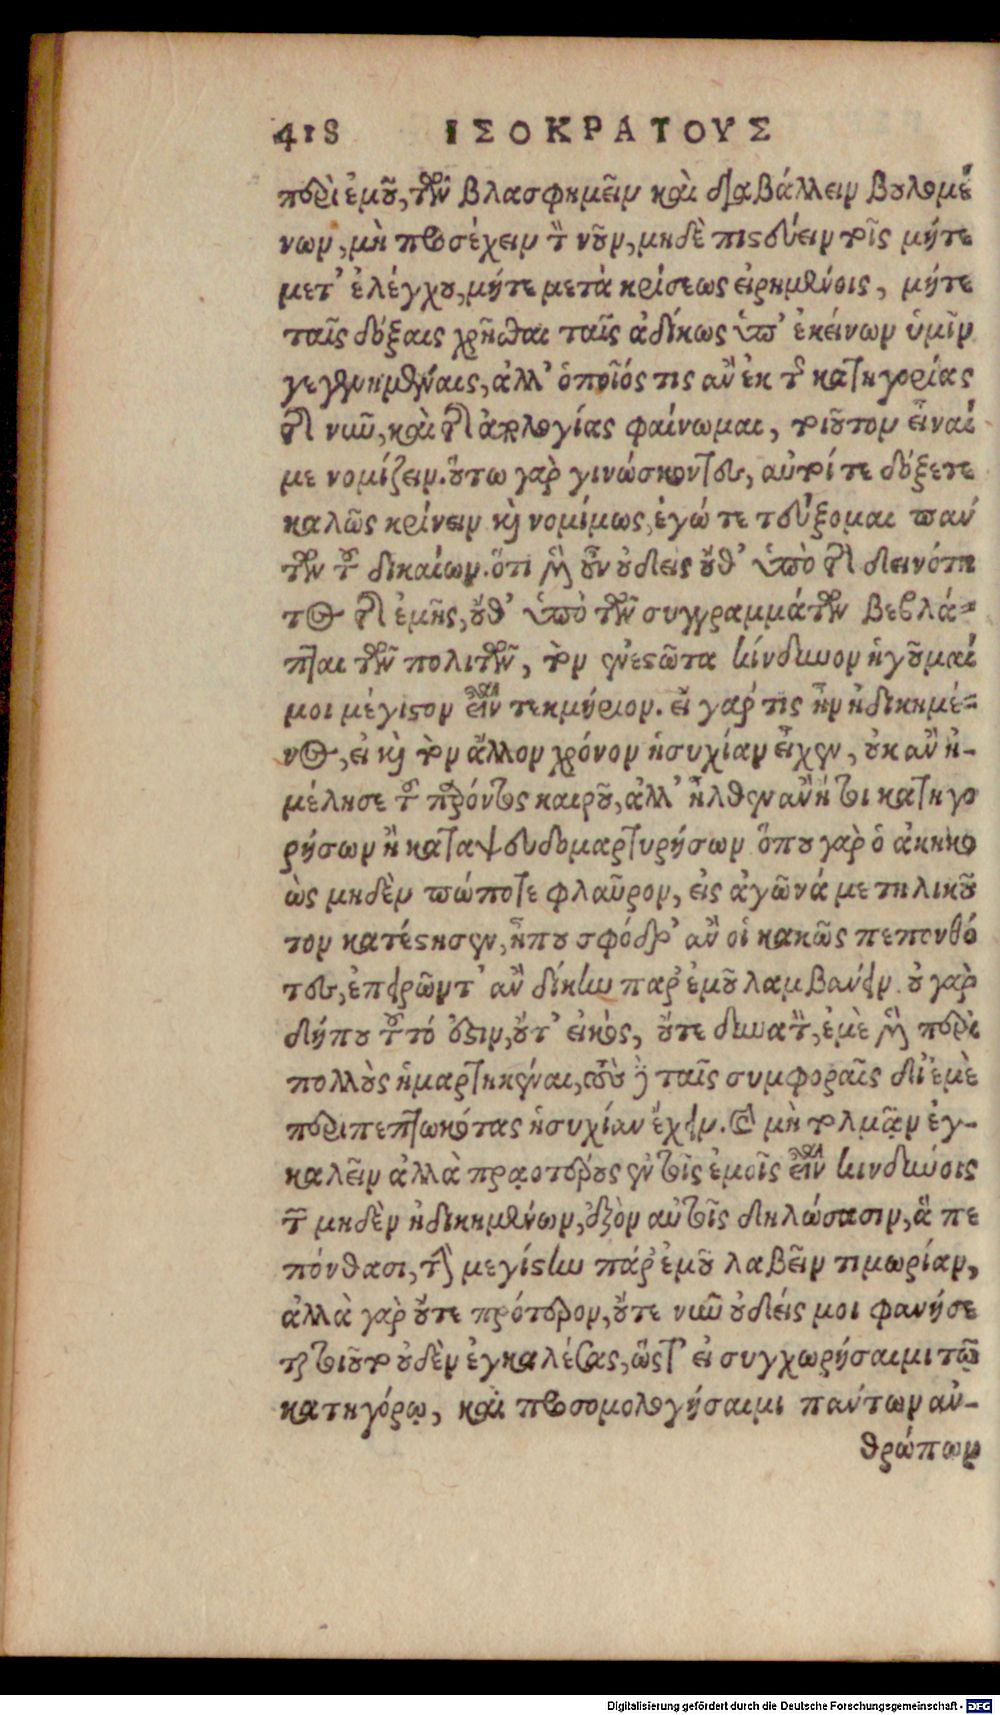 418 ΙΣΟΚΡΑΤΟΥΣ
περὶ ἐμοῦ, τῶν βλασφημεῖν καὶ διαβάλλειν βουλομέ
νων, μὴ προσέχειν τὸν νοῦν, μηδὲ πιστεύειν τοῖς μήτε
μετ' ἐλέγχου, μήτε μετὰ κρίσεως εἰρημένοις, μήτε
ταῖς δόξαις χρῆσθαι ταῖς ἀδίκως ὑπ' ἐκείνων ὑμῖν
γεγενημέναις, ἀλλ' ὁποῖός τις ἂν ἐκ τῆς κατηγορίας
τῆς νῦν, καὶ τῆς ἀπολογίας φαίνωμαι, τοιοῦτον εἶναί
με νομίζειν. οὕτω γὰρ γινώσκοντες, αὐτοί τε δόξετε
καλῶς κρίνειν καὶ νομίμως, ἐγώ τε τεύξομαι παν
των τῶν δικαίων. ὅτι μὲν οὖν οὐδεὶς οὔθ' ὑπὸ τῆς δεινότη
τος τῆς ἐμῆς, οὔθ' ὑπὸ τῶν συγγραμμάτων βέβλα-
πται τῶν πολιτῶν, τὸν ἐνεστῶτα κίνδυνον ἡγοῦμαί
μοι μέγιστον εἶναι τεκμήριον. εἰ γάρ τις ἦν ἠδικημέ-
νος, εἰ καὶ τὸν ἄλλον χρόνον ἡσυχίαν εἶχεν, οὐκ ἂν ἠ-
μέλησε τοῦ παρόντος καιροῦ, ἀλλ' ἦλθεν ἂν ἤτοι κατηγο
ρήσων ἢ καταψευδομαρτυρήσων ὅπου γὰρ ὁ ἀκηκο
ὼς μηδὲν πώποτε φλαῦρον, εἰς ἀγῶνά με τηλικοῦ
τον κατέστησεν, ἦπου σφόδρ' ἂν οἱ κακῶς πεπονθό
τες, ἐπειρῶντ' ἂν δίκην παρ' ἐμοῦ λαμβάνειν. οὐ γὰρ
δήπου τοῦτό ἐστιν, οὔτ' εἰκὸς, οὔτε δυνατὸν, ἐμὲ μὲν περὶ
πολλοὺς ἡμαρτηκέναι, τοὺς δὲ ταῖς συμφοραῖς δι' ἐμὲ
περιπεπτωκότας ἡσυχίαν ἔχειν. καὶ μὴ τολμᾶν ἐγ-
καλεῖν ἀλλὰ πρᾳοτέρους ἐν τοῖς ἐμοῖς εἶναι κινδύνοις
τῶν μηδὲν ἠδικημένων, ἐξὸν αὐτοῖς δηλώσασιν, ἃ πε
πόνθασι, τὴν μεγίστην πάρ' ἐμοῦ λαβεῖν τιμωρίαν,
ἀλλὰ γὰρ οὔτε πρότερον, οὔτε νῦν οὐδείς μοι φανήσε
ται τοιοῦτο οὐδὲν ἐγκαλέσας, ὥστ' εἰ συγχωρήσαιμι τῷ
κατηγόρῳ, καὶ προσομολογήσαιμι πάντων ἀν-
θρώπων
Digitalisierung gefördert durch die Deutsche Forschungsgemeinschaft - DFG